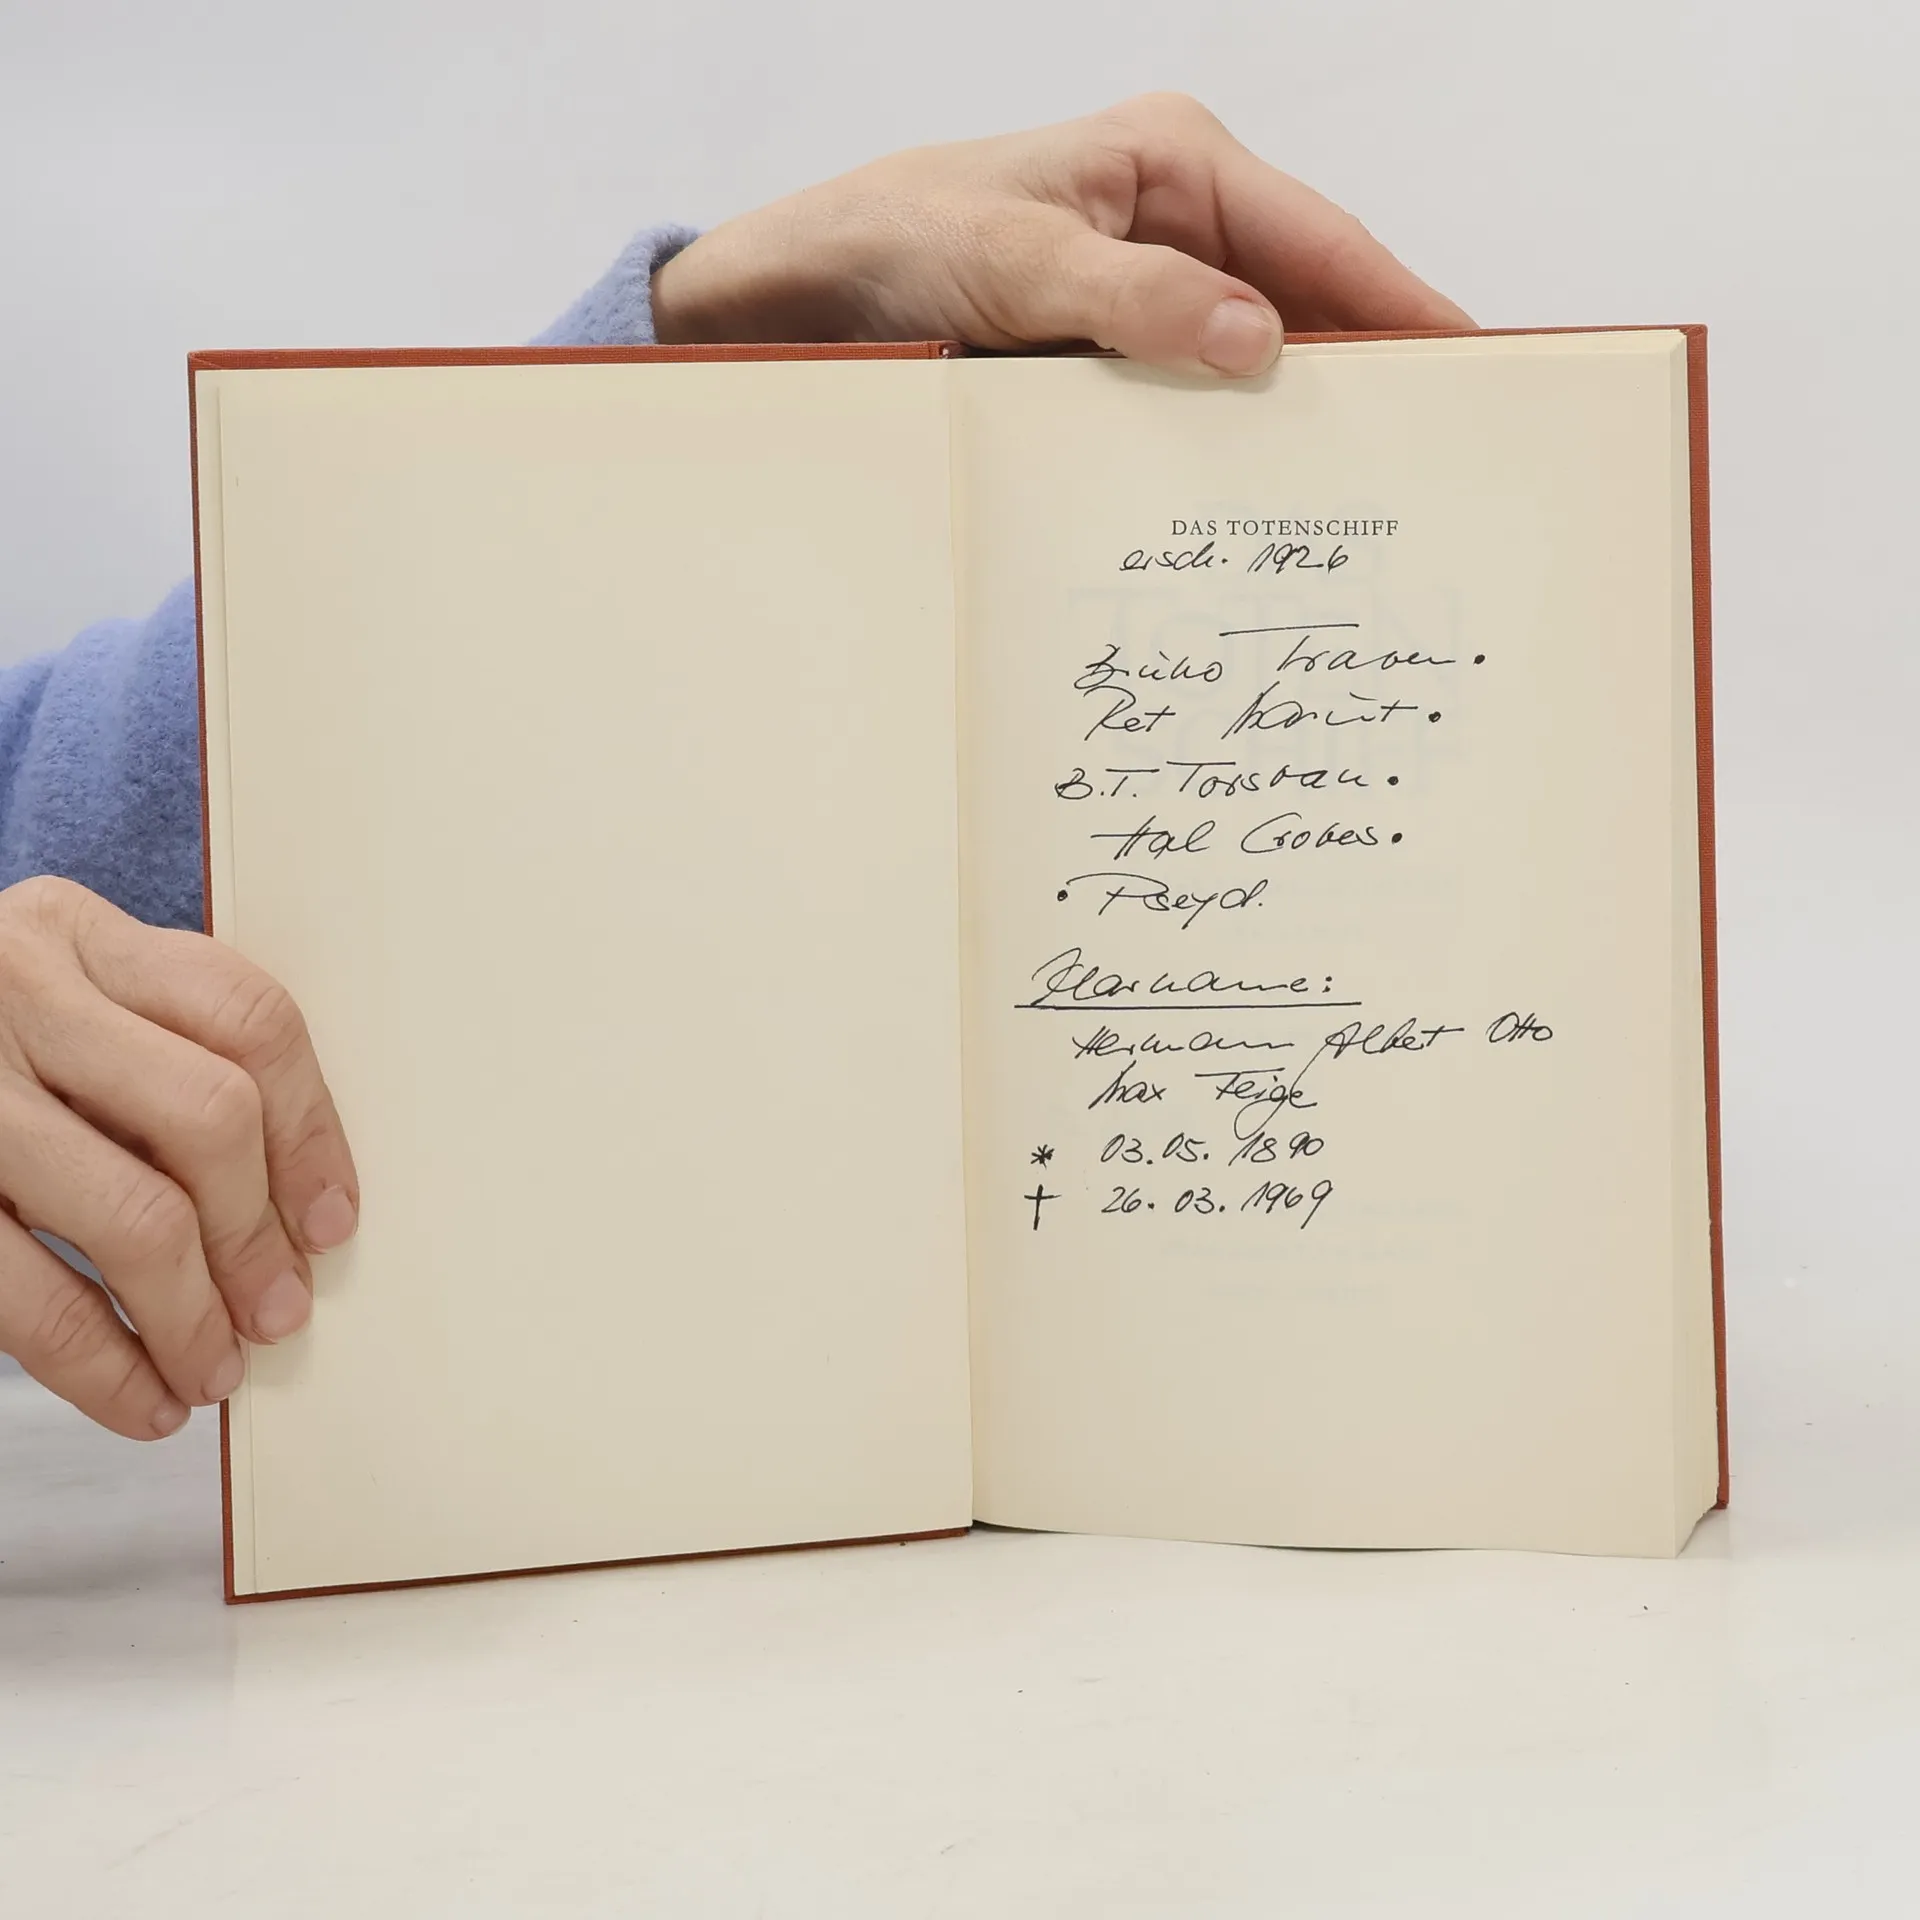 DAS TOTENSCHIFF
ersch. 1926
Bruno Traven •
Ret Marut •
B.T. Torsvan •
Hal Croves •
• Pseyd.
Klarname:
Hermann Albert Otto
Max Feige
* 03.05. 1890
† 26. 03. 1969